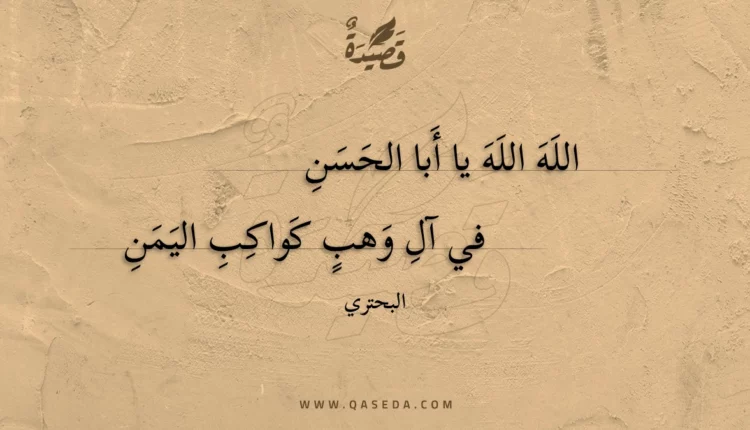 قَصِيْدَةٌ
اللَهَ اللَهَ يا أَبا الحَسَنِ
في آلِ وَهبٍ كَواكِبِ اليَمَنِ
البحتري
WWW.QASEDA.COM